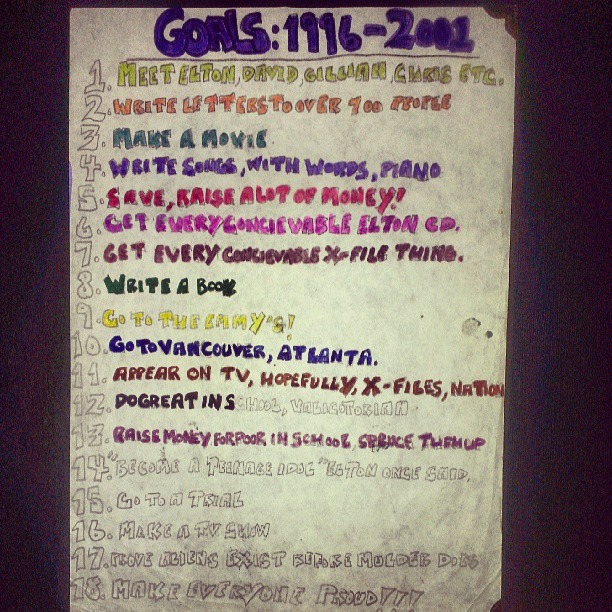 GOALS: 1996-2001
1. MEET ELTON, DAVID, GILLIAN, CHRIS ETC.
2. WRITE LETTERS TO OVER 900 PEOPLE
3. MAKE A MOVIE
4. WRITE SONGS, WITH WORDS, PIANO
5. SAVE, RAISE A LOT OF MONEY!
6. GET EVERY CONCIEVABLE ELTON CD.
7. GET EVERY CONCIEVABLE X-FILE THING.
8. WRITE A BOOK
9. GO TO THE EMMY'S!
10. GO TO VANCOUVER, ATLANTA.
11. APPEAR ON TV, HOPEFULLY, X-FILES, NATION
12. DO GREAT IN SCHOOL, VALICTORIAN
13. RAISE MONEY FOR POOR IN SCHOOL, SPRUCE THEM UP
14. "BECOME A TEENAGE IDOL" ELTON ONCE SAID.
15. GO TO A TRIAL
16. MAKE A TV SHOW
17. PROVE ALIENS EXIST BEFORE MULDER DOES
18. MAKE EVERYONE PROUD!!!